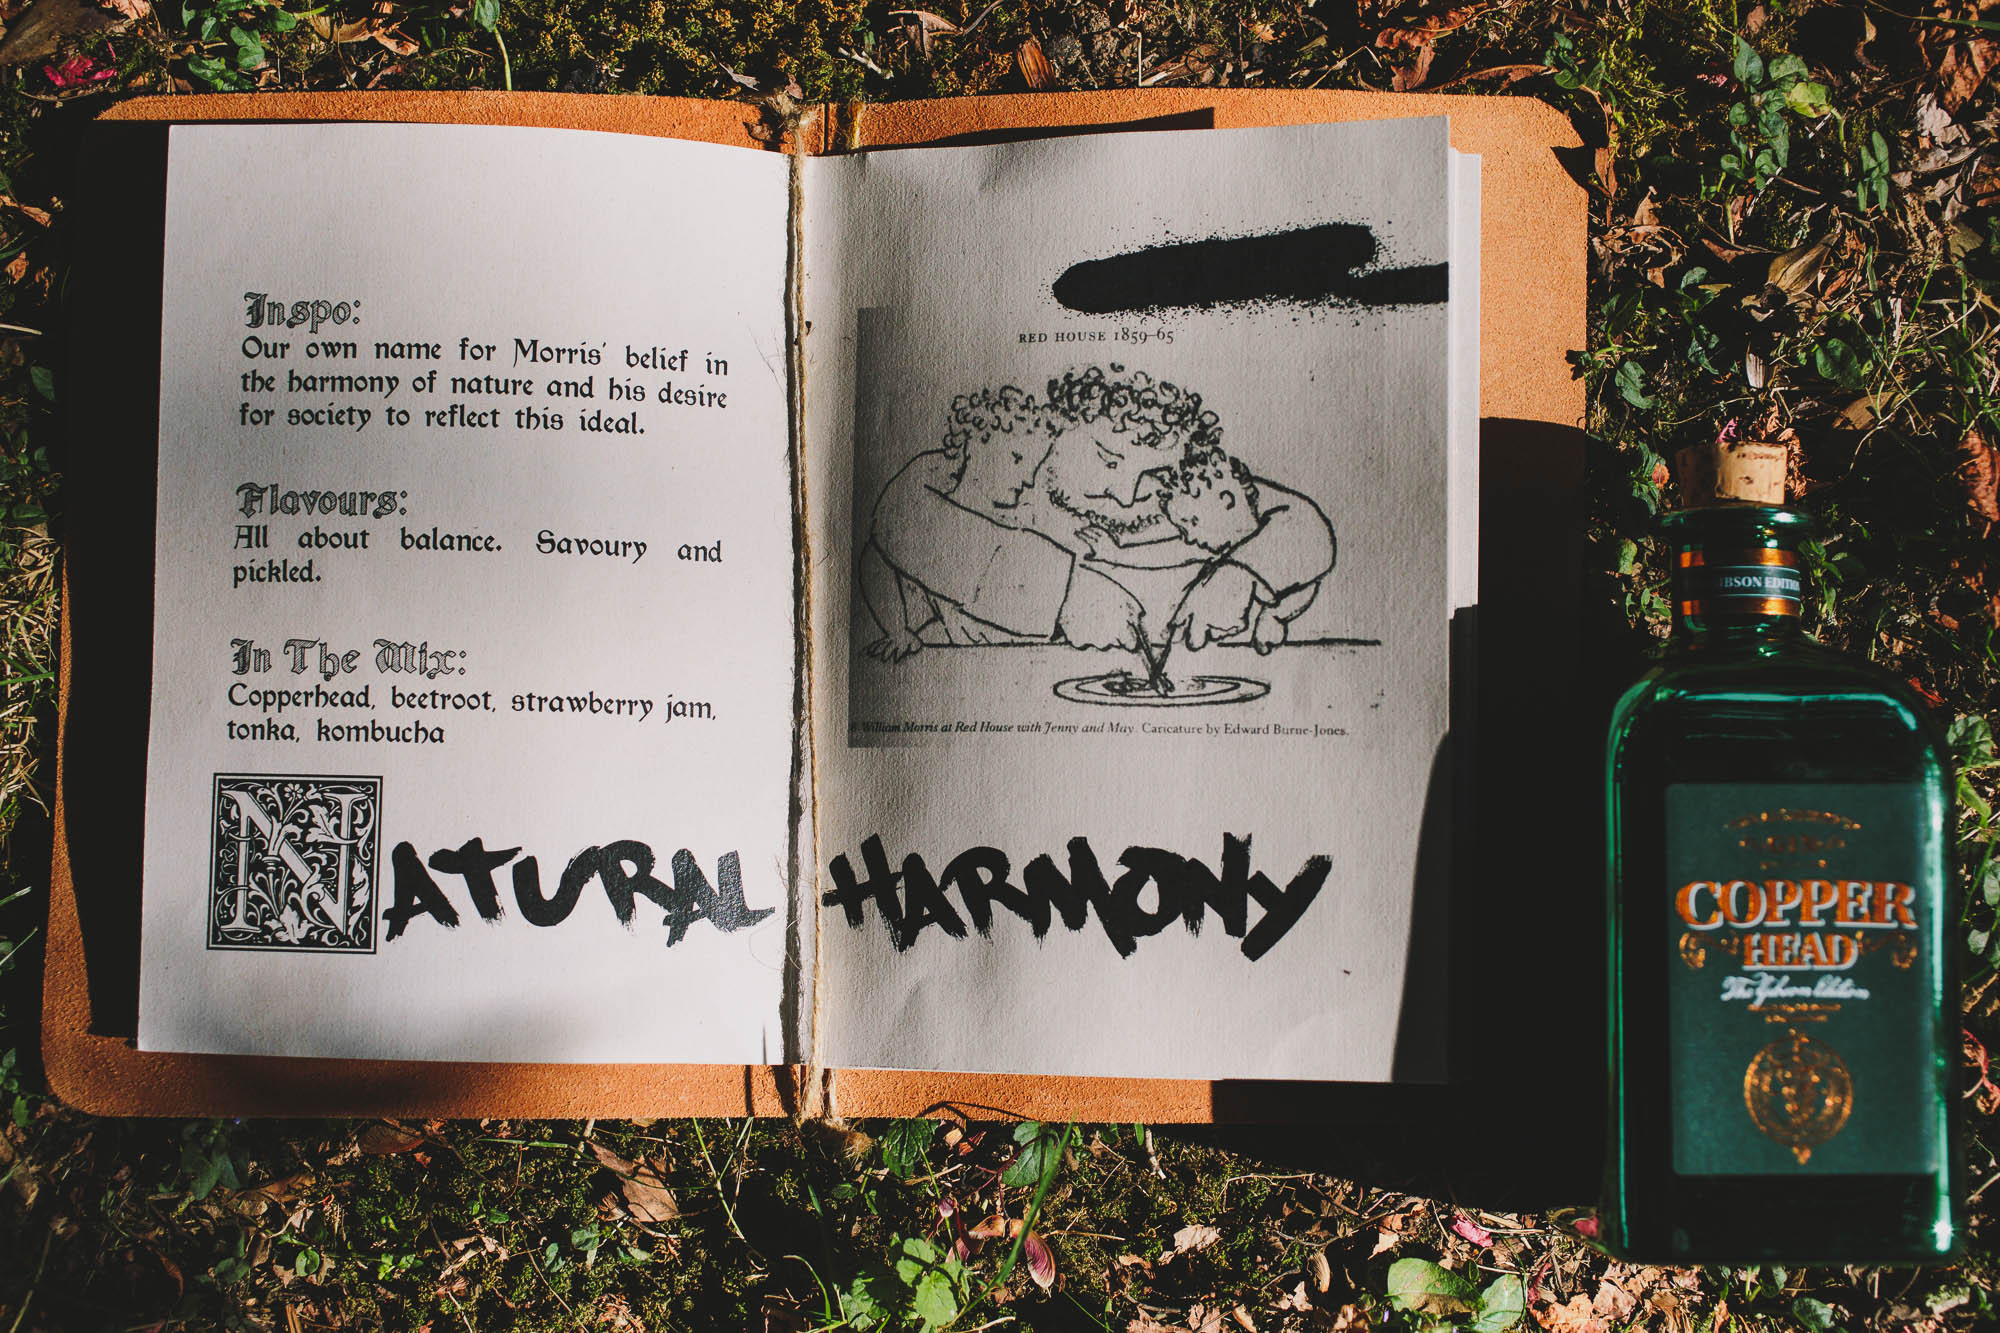 Inspo:
Our own name for Morris' belief in
the harmony of nature and his desire
for society to reflect this ideal.
Flavours:
All about balance. Savoury and
pickled.
In The Mix:
Copperhead, beetroot, strawberry jam,
tonka, kombucha
NATURAL HARMONY
RED HOUSE 1859–65
William Morris at Red House with Jenny and May. Caricature by Edward Burne-Jones.
IBSON EDITION
COPPER
HEAD
The Gibson Edition